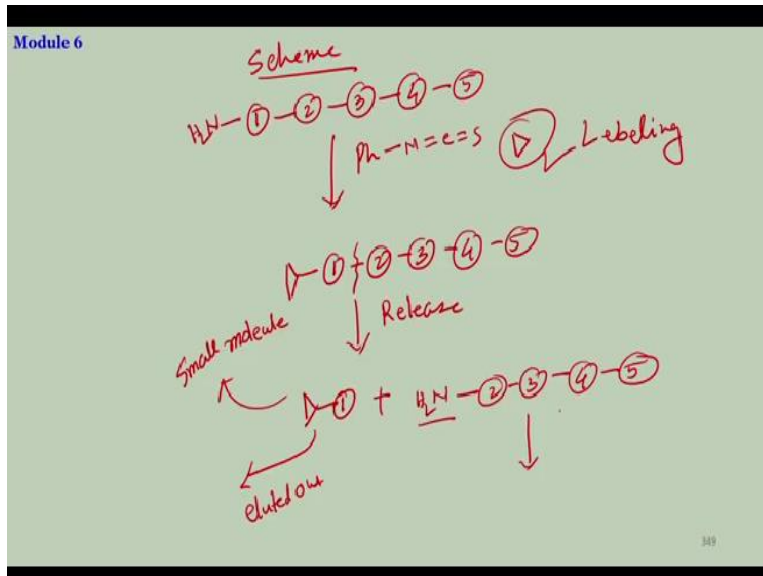 Module 6
Scheme
H2N-①-②-③-④-⑤
Ph-N=C=S ▷ Lebeling
▷-①-②-③-④-⑤
Release
Small molecule
▷-① + H2N-②-③-④-⑤
eluted out
349